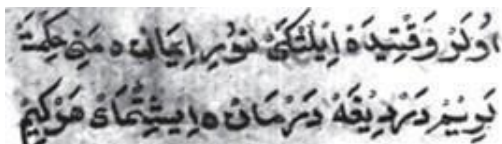 اُولَرْ وَقْتِيدَهْ اِيلْتْكَىْ نُورِ اِيمَانْ ه مَنِى حِكْمَتْ
لَرِيْمْ دَرْدِيْقَهْ دَرْمَانْ ه اِيشِتْمَاىْ هَرْكِيمْ